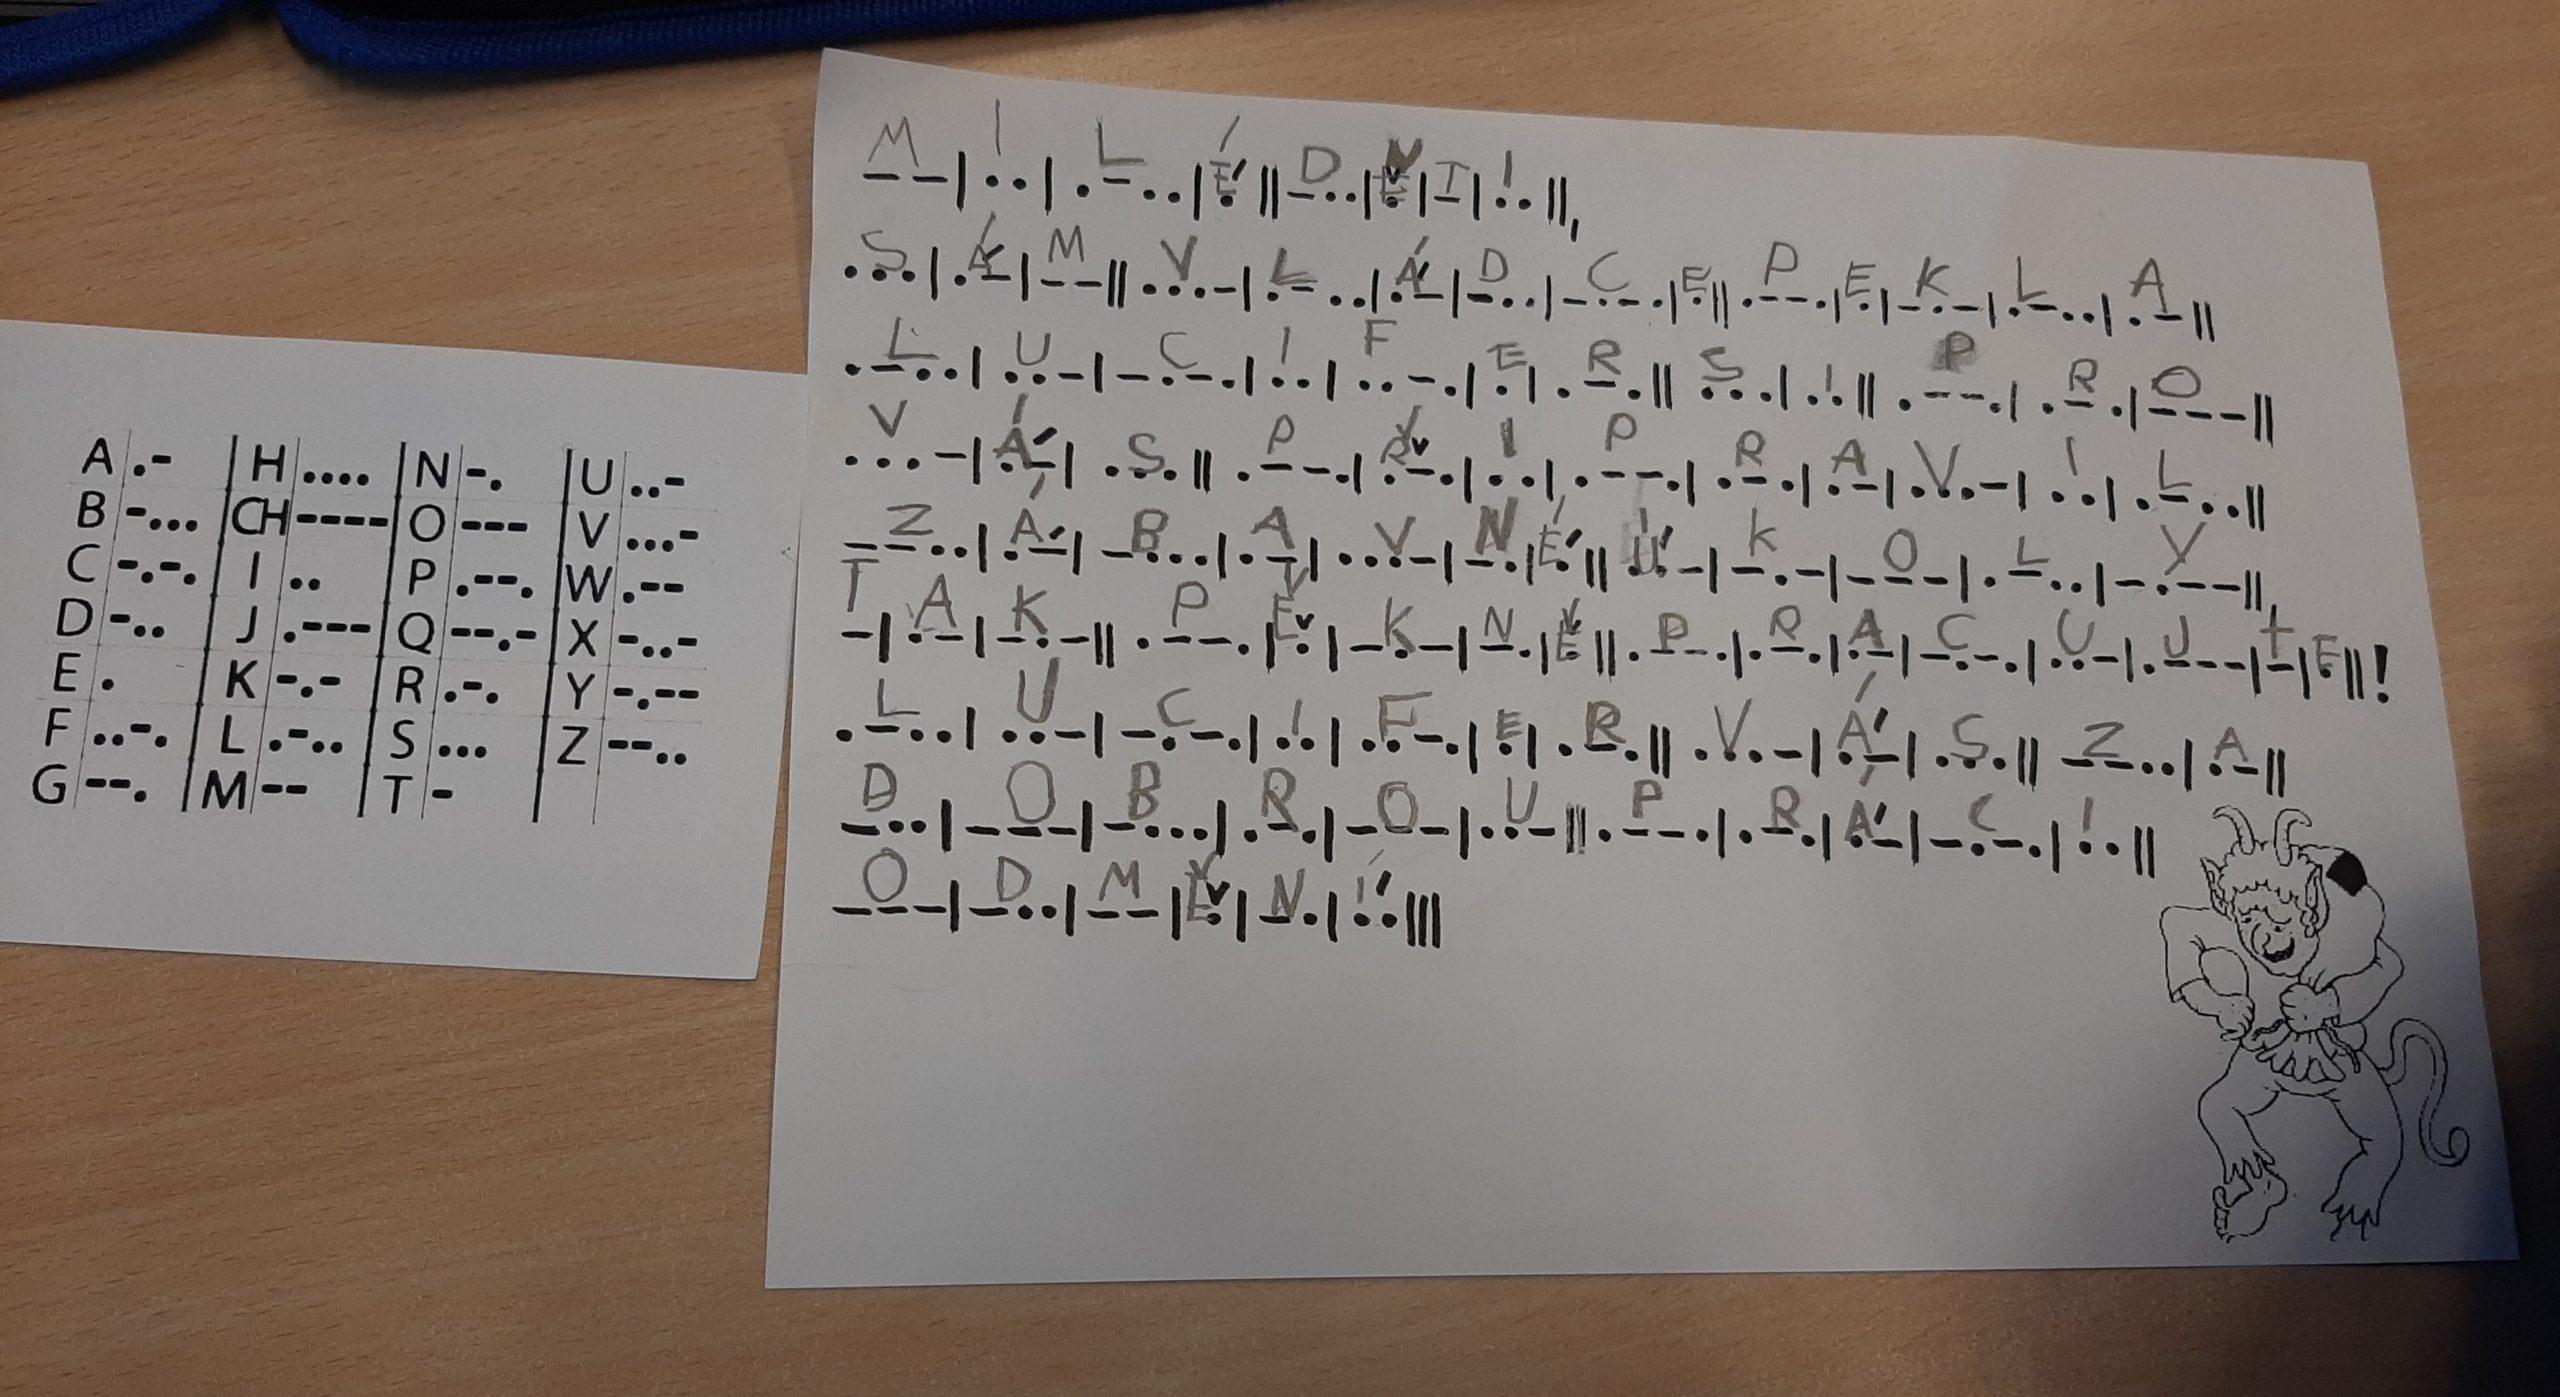 A .- H .... N -. U ..-
B -... CH ---- O --- V ...-
C -.-. I .. P .--. W .--
D -.. J .--- Q --.- X -..-
E . K -.- R .-. Y -.--
F ..-. L .-.. S ... Z --..
G --. M -- T -
M I L É D Ě T I
--|..|.-..|.́||-..|.̌|-|..||,
S Á M V L Á D C E P E K L A
...|.-́|--||...-|.-..|.-́|-..|-.-.|.||.--.|.|-.-|.-..|.-||
L U C I F E R S I P R O
.-..|..-|-.-.|..|..-.|.|.-.||...|..||.--.|.-.|---||
V Á S P Ř I P R A V I L
...-|.-́|...||.--.|.-.̌|..|.--.|.-.|.-|...-|..|.-..||
Z Á B A V N É Ú K O L Y
--..|.-́|-...|.-|...-|-.|.́||..-́|-.-|---|.-..|-.--||,
T A K P Ě K N Ě P R A C U J T E
-|.-|-.-||.--.|.̌|-.-|-.|.̌||.--.|.-.|.-|-.-.|..-|.---|-|.||!
L U C I F E R V Á S Z A
.-..|..-|-.-.|..|..-.|.|.-.||...-|.-́|...||--..|.-||
D O B R O U P R Á C I
-..|---|-...|.-.|---|..-||.--.|.-.|.-́|-.-.|..||
O D M Ě N Í
---|-..|--|.̌|-.|..́|||